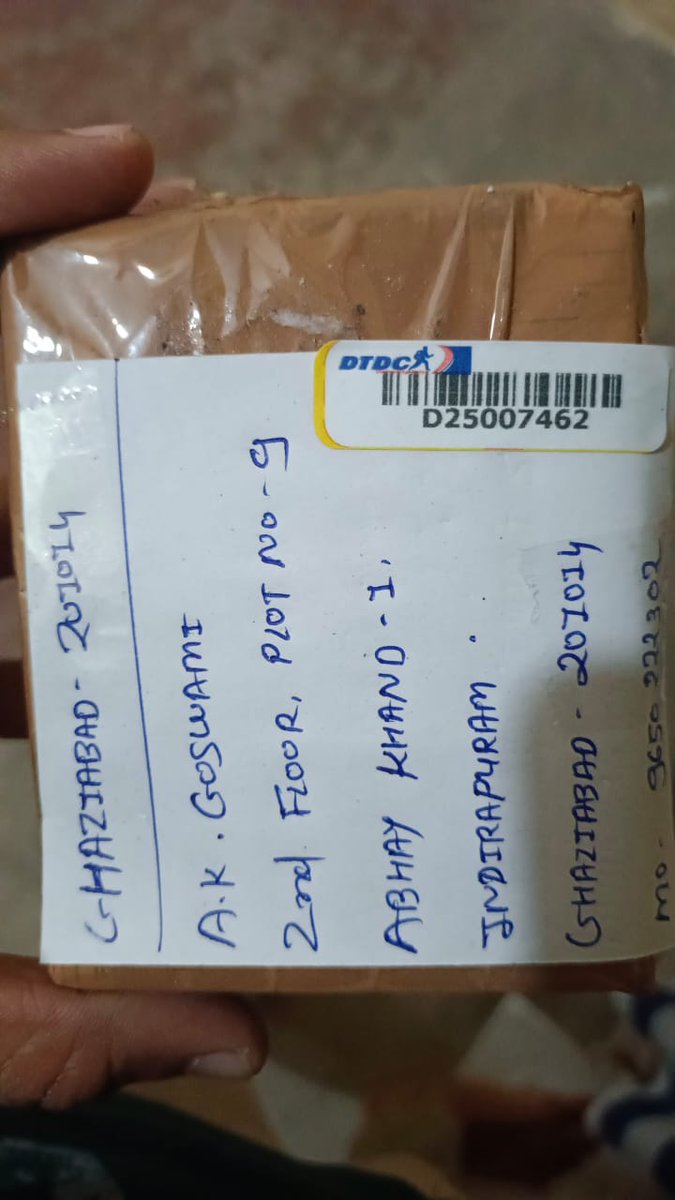 DTDC
D25007462
GHAZIABAD - 201014
A.K. GOSWAMI
2nd FLOOR, PLOT NO - 9
ABHAY KHAND - 1,
INDIRAPURAM.
GHAZIABAD - 201014
MO - 9650 222302